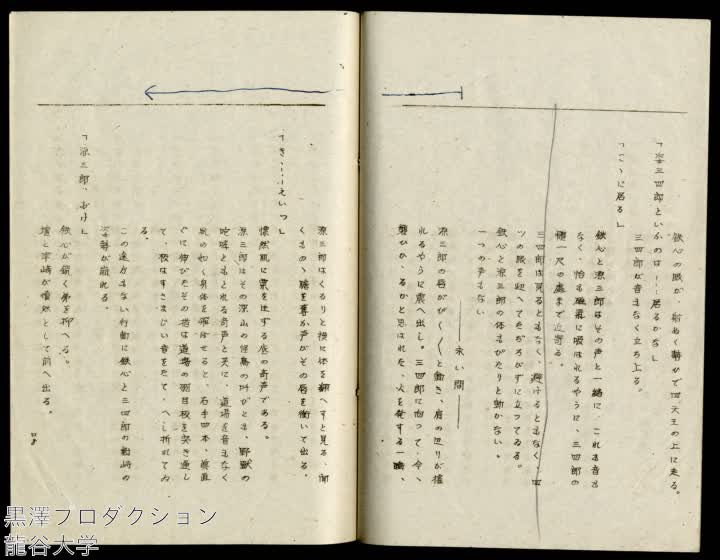 鉄心の眼が、射ぬく勢かで四天王の上に走る。
「姿三四郎といふのは……居るかな」
三四郎が音もなく立ち上る。
「こゝに居る」
鉄心と源三郎はその声と一緒に、これも音も
なく、恰も磁気に吸はれるやうに、三四郎の
一尺の処まで近寄る。
三四郎は見るともなく、避けるともなく、四
ツの眼を迎へてたぢろがずに立つてゐる。
鉄心と源三郎の体もぴたりと動かない。
一つの声もない
――永い間――
源三郎の唇がぴく／＼と動き、肩の辺りが揺
れるやうに震へ出し。三四郎に向つて、今、
襲ひかゝるかと思はれた、火を発する一瞬、
源三郎はくるりと横に体を翻へすと見る、間
くもの、声がその唇を衝いて出る。
「きゝ……えいつ」
慄然肌に粟を生ずる底の奇声である。
源三郎はその深山の怪鳥の叫びとも、野獣の
咆哮ともとれる奇声と共に、道場を音もなく
の如く身体を走らせると、右手四本、真直
ぐに伸びたその指は道場の羽目板を突き通し
て、板はすさまじい音をたて、へし折れてゐ
る。
この途方もない行動に鉄心と三四郎の
姿勢が崩れる。
「源三郎、よけ」
鉄心が鋭く弟を抑へる。
壇と津崎が憤然として前へ出る。
黒澤プロダクション
龍谷大学